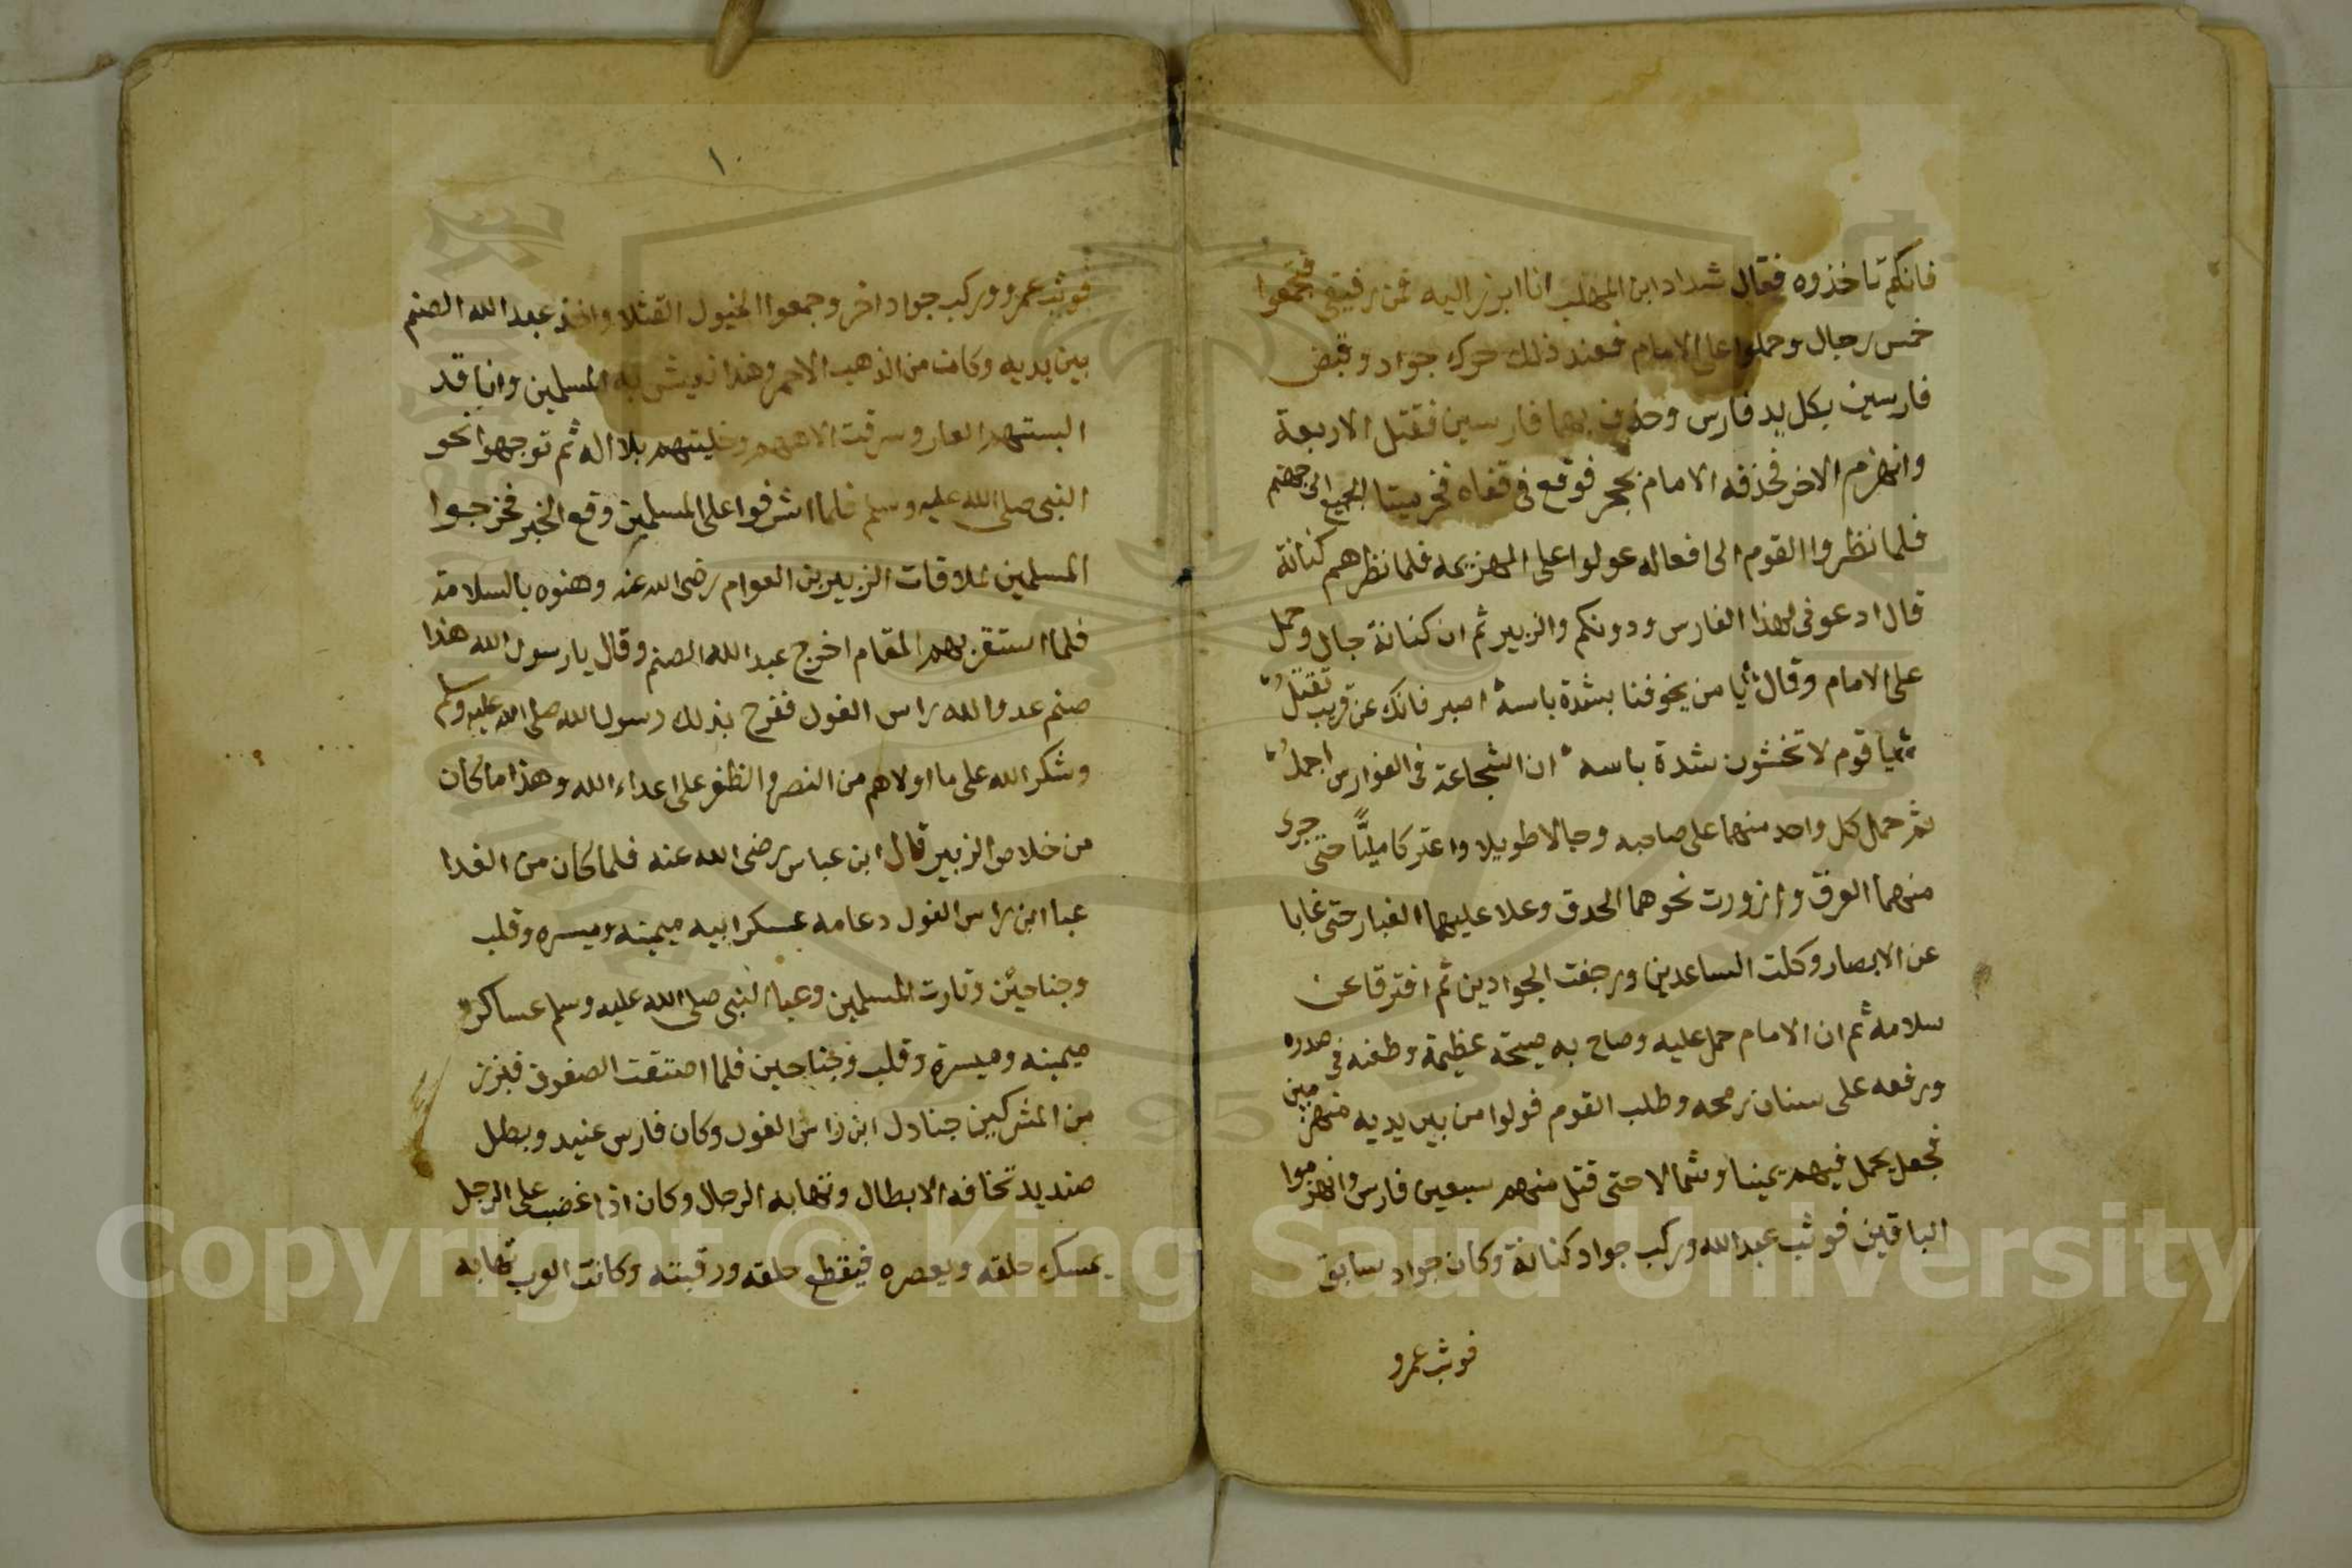 فانكم تاخذوه فقال شداد ابن المهلب انا ابرز اليه فمن رفيقي فتجمعوا
خمس رجال وحملوا على الامام فعند ذلك حرك جواد وقبض
فارسين بكل يد فارس وحذف بهما فارسين فقتل الاربعة
وانهزم الاخر فحذفه الامام بحجر فوقع في قفاه فخر ميتا الجميع الى جهنم
فلما نظروا القوم الى افعاله عولوا على الهزيمه فلما نظرهم كنانة
قال ادعوني لهذا الفارس ودونكم والزبير ثم ان كنانة جال وحمل
على الامام وقال يا من يخوفنا بشدة باسه اصبر فانك عن قريب تقتل
يا قوم لا تخشون شدة باسه ان الشجاعة في الفوارس اجمل
ثم حمل كل واحد منهما على صاحبه وجالا طويلا واعتركا مليًّا حتى جرى
منهما العرق وازورت نحوهما الحدق وعلا عليهما الغبار حتى غابا
عن الابصار وكلت الساعدين ورجفت الجوادين ثم افترقا عن
سلامه ثم ان الامام حمل عليه وصاح به صيحة عظيمة وطعنه في صدره
ورفعه على سنان رمحه وطلب القوم فولوا من بين يديه منهزمين
فجعل يحمل فيهم يمينا وشمالا حتى قتل منهم سبعين فارس وانهزموا
الباقين فوثب عبد الله وركب جواد كنانة وكان جواد سابق
فوثب عمرو
١٠
فوثب عمرو وركب جواد اخر وجمعوا الخيول القتلا واخذ عبد الله الصنم
بين يديه وكانت من الذهب الاحمر وهذا به المسلمين وانا قد
البستهم العار وسرقت الاههم وخليتهم بلا اله ثم توجهوا نحو
النبى صلى الله عليه وسلم فلما اشرفوا على المسلمين وقع الخبر فخرجوا
المسلمين لملاقات الزبير بن العوام رضى الله عنه وهنوه بالسلامة
فلما استقر بهم المقام اخرج عبد الله الصنم وقال يا رسول الله هذا
صنم عدو الله راس الغول ففرح بذلك رسول الله صلى الله عليه وسلم
وشكر الله على ما اولاهم من النصر والظفر على اعداء الله وهذا ما كان
من خلاص الزبير قال ابن عباس رضى الله عنه فلما كان من الغدا
عبا ابن راس الغول دعامه عسكر ابيه ميمنه وميسره وقلب
وجناحين وثارت المسلمين وعبا النبى صلى الله عليه وسلم عساكره
ميمنه وميسرة وقلب وجناحين فلما اصتفت الصفوف فبرز
من المشركين جنادل ابن راس الغول وكان فارس عنيد وبطل
صنديد تخافه الابطال وتهابه الرجال وكان اذا غضب على الرجل
يمسك حلقه ويعصره فيقطع حلقه ورقبته وكانت العرب تهابه
Copyright © King Saud University